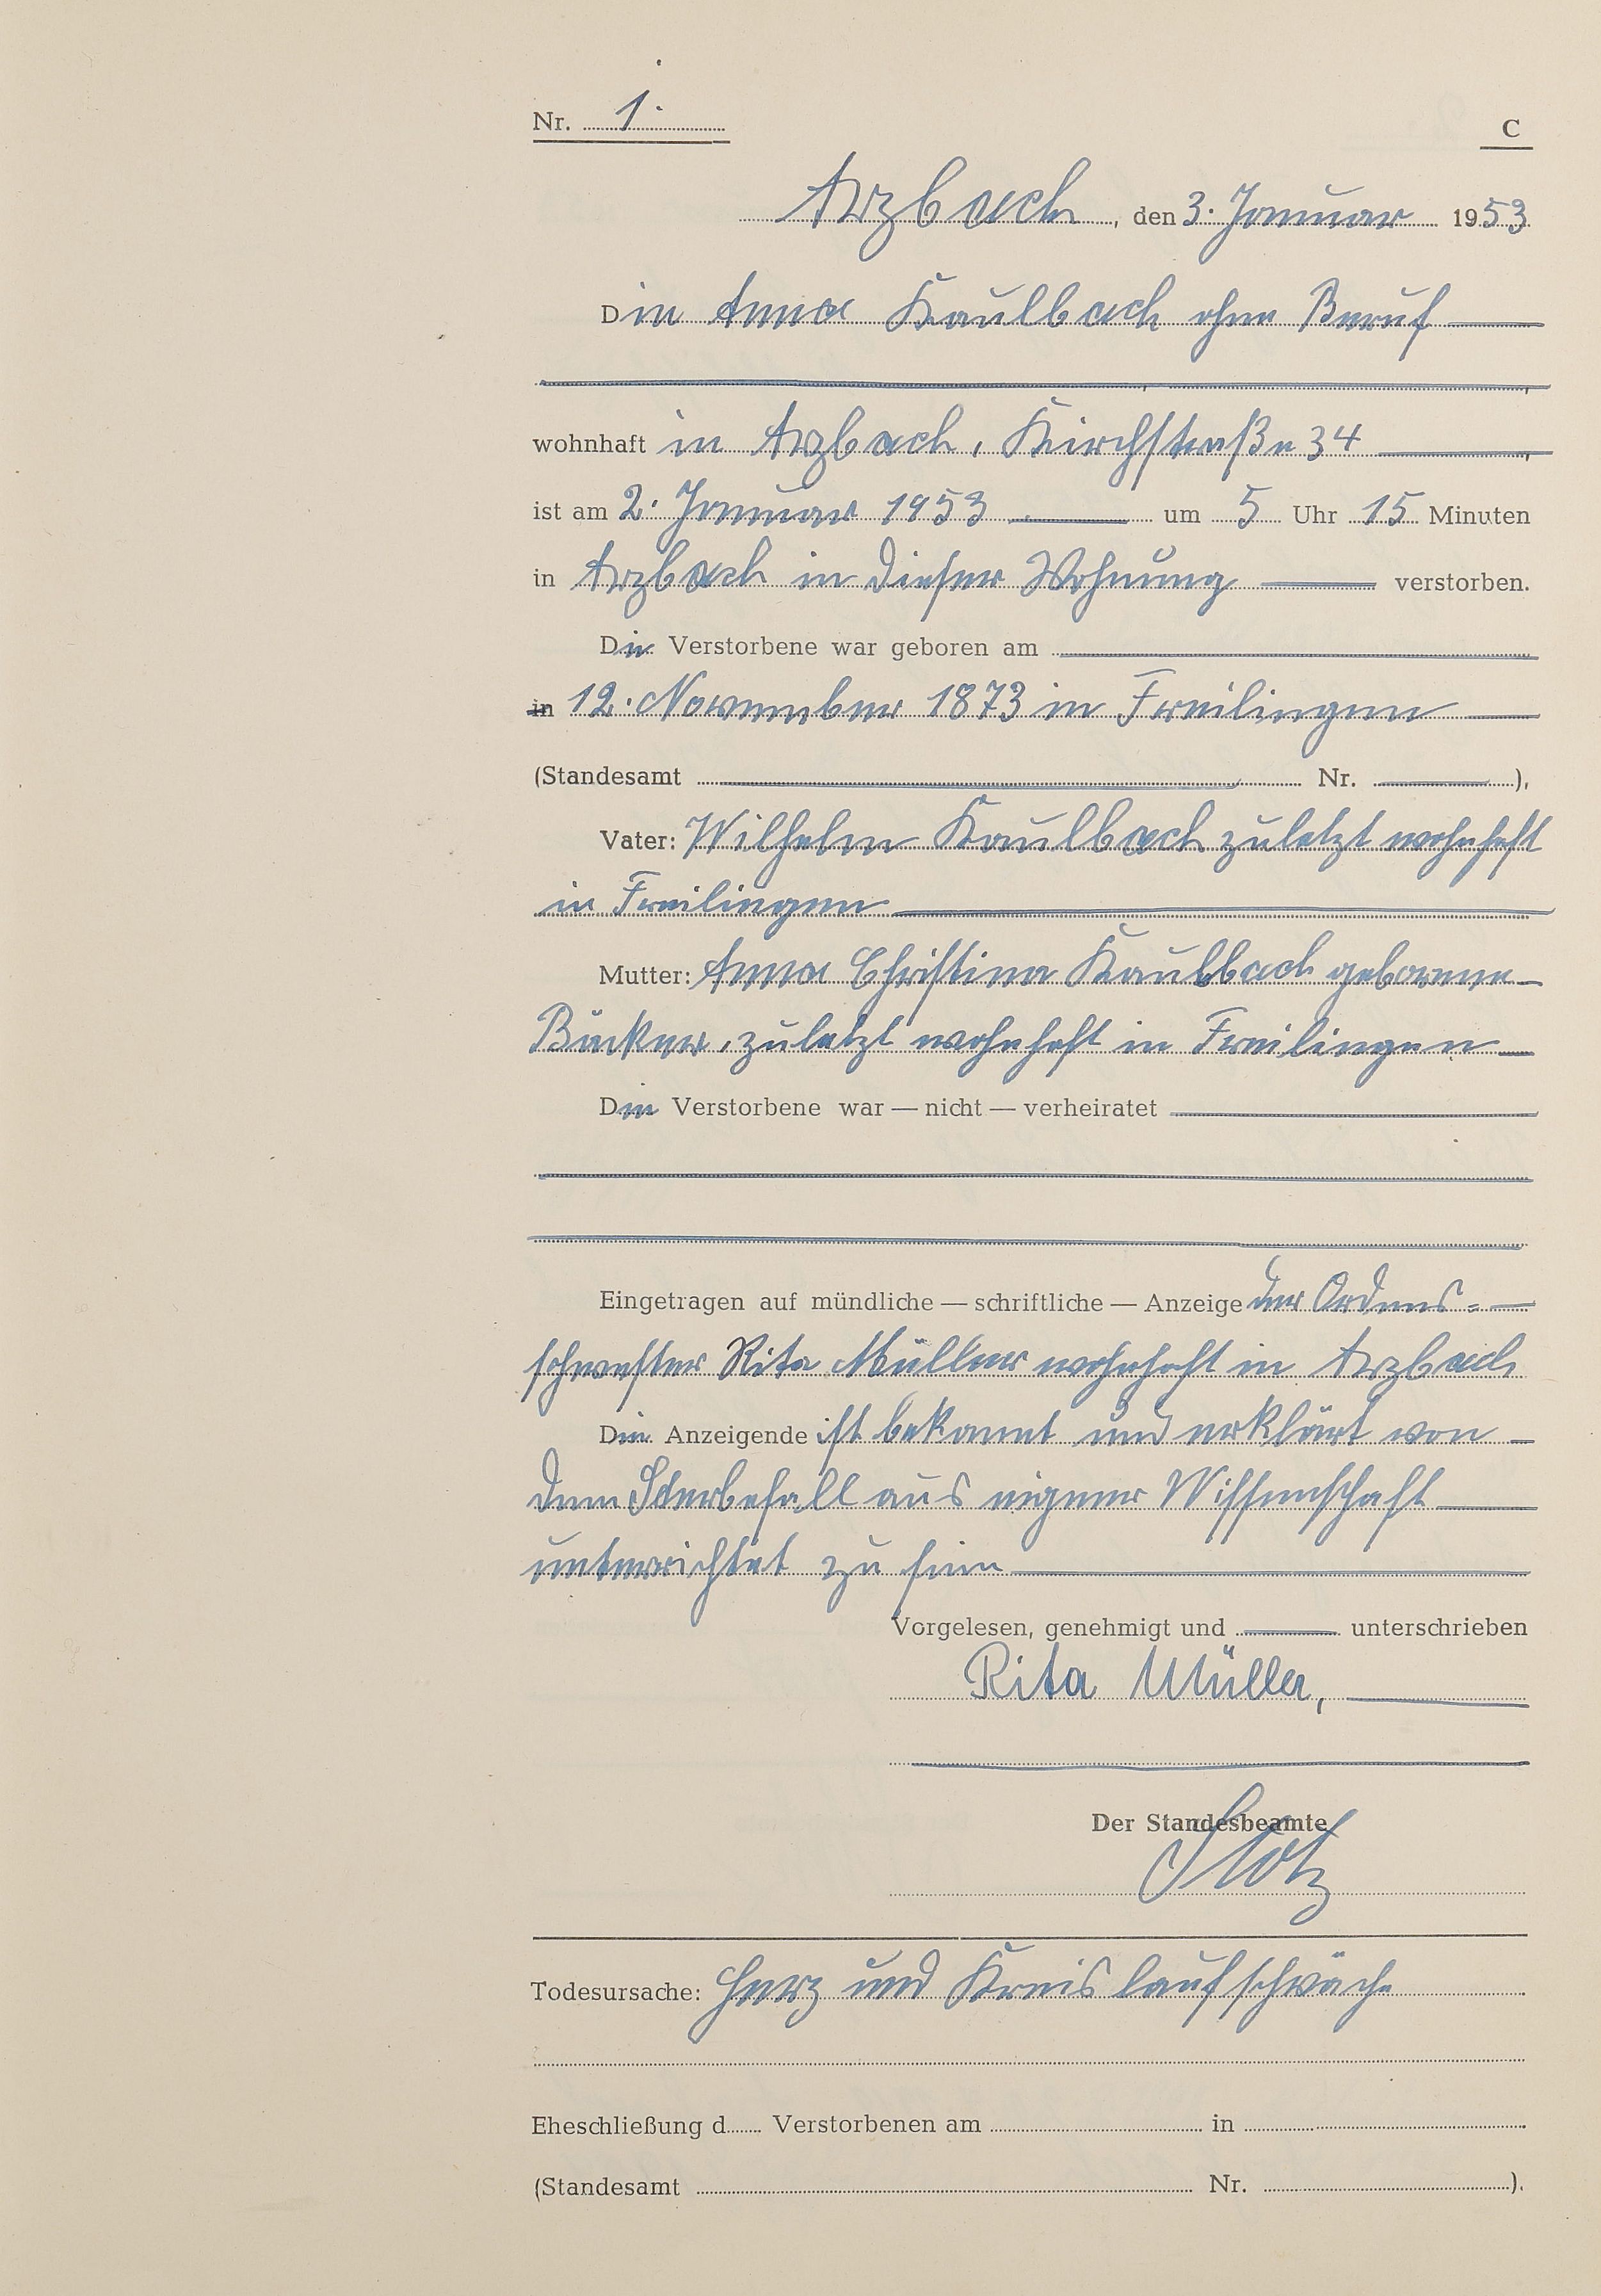 Nr. 1.
C
Arzbach, den 3. Januar 1953
Die Anna Kaulbach ohne Beruf
wohnhaft in Arzbach, Kirchstraße 34
ist am 2. Januar 1953 um 5 Uhr 15 Minuten
in Arzbach in dieser Wohnung verstorben.
Die Verstorbene war geboren am
in 12. November 1873 in Freilingen
(Standesamt Nr. ),
Vater: Wilhelm Kaulbach zuletzt wohnhaft
in Freilingen
Mutter: Anna Christina Kaulbach geborene
Bäcker, zuletzt wohnhaft in Freilingen
Die Verstorbene war — nicht — verheiratet
Eingetragen auf mündliche — schriftliche — Anzeige der Ordens=
schwester Rita Müller wohnhaft in Arzbach
Die Anzeigende ist bekannt und erklärt von
dem Sterbefall aus eigener Wissenschaft
unterrichtet zu sein
Vorgelesen, genehmigt und unterschrieben
Rita Müller,
Der Standesbeamte
Stotz
Todesursache: Herz und Kreislaufschwäche
Eheschließung d Verstorbenen am in
(Standesamt Nr. ).